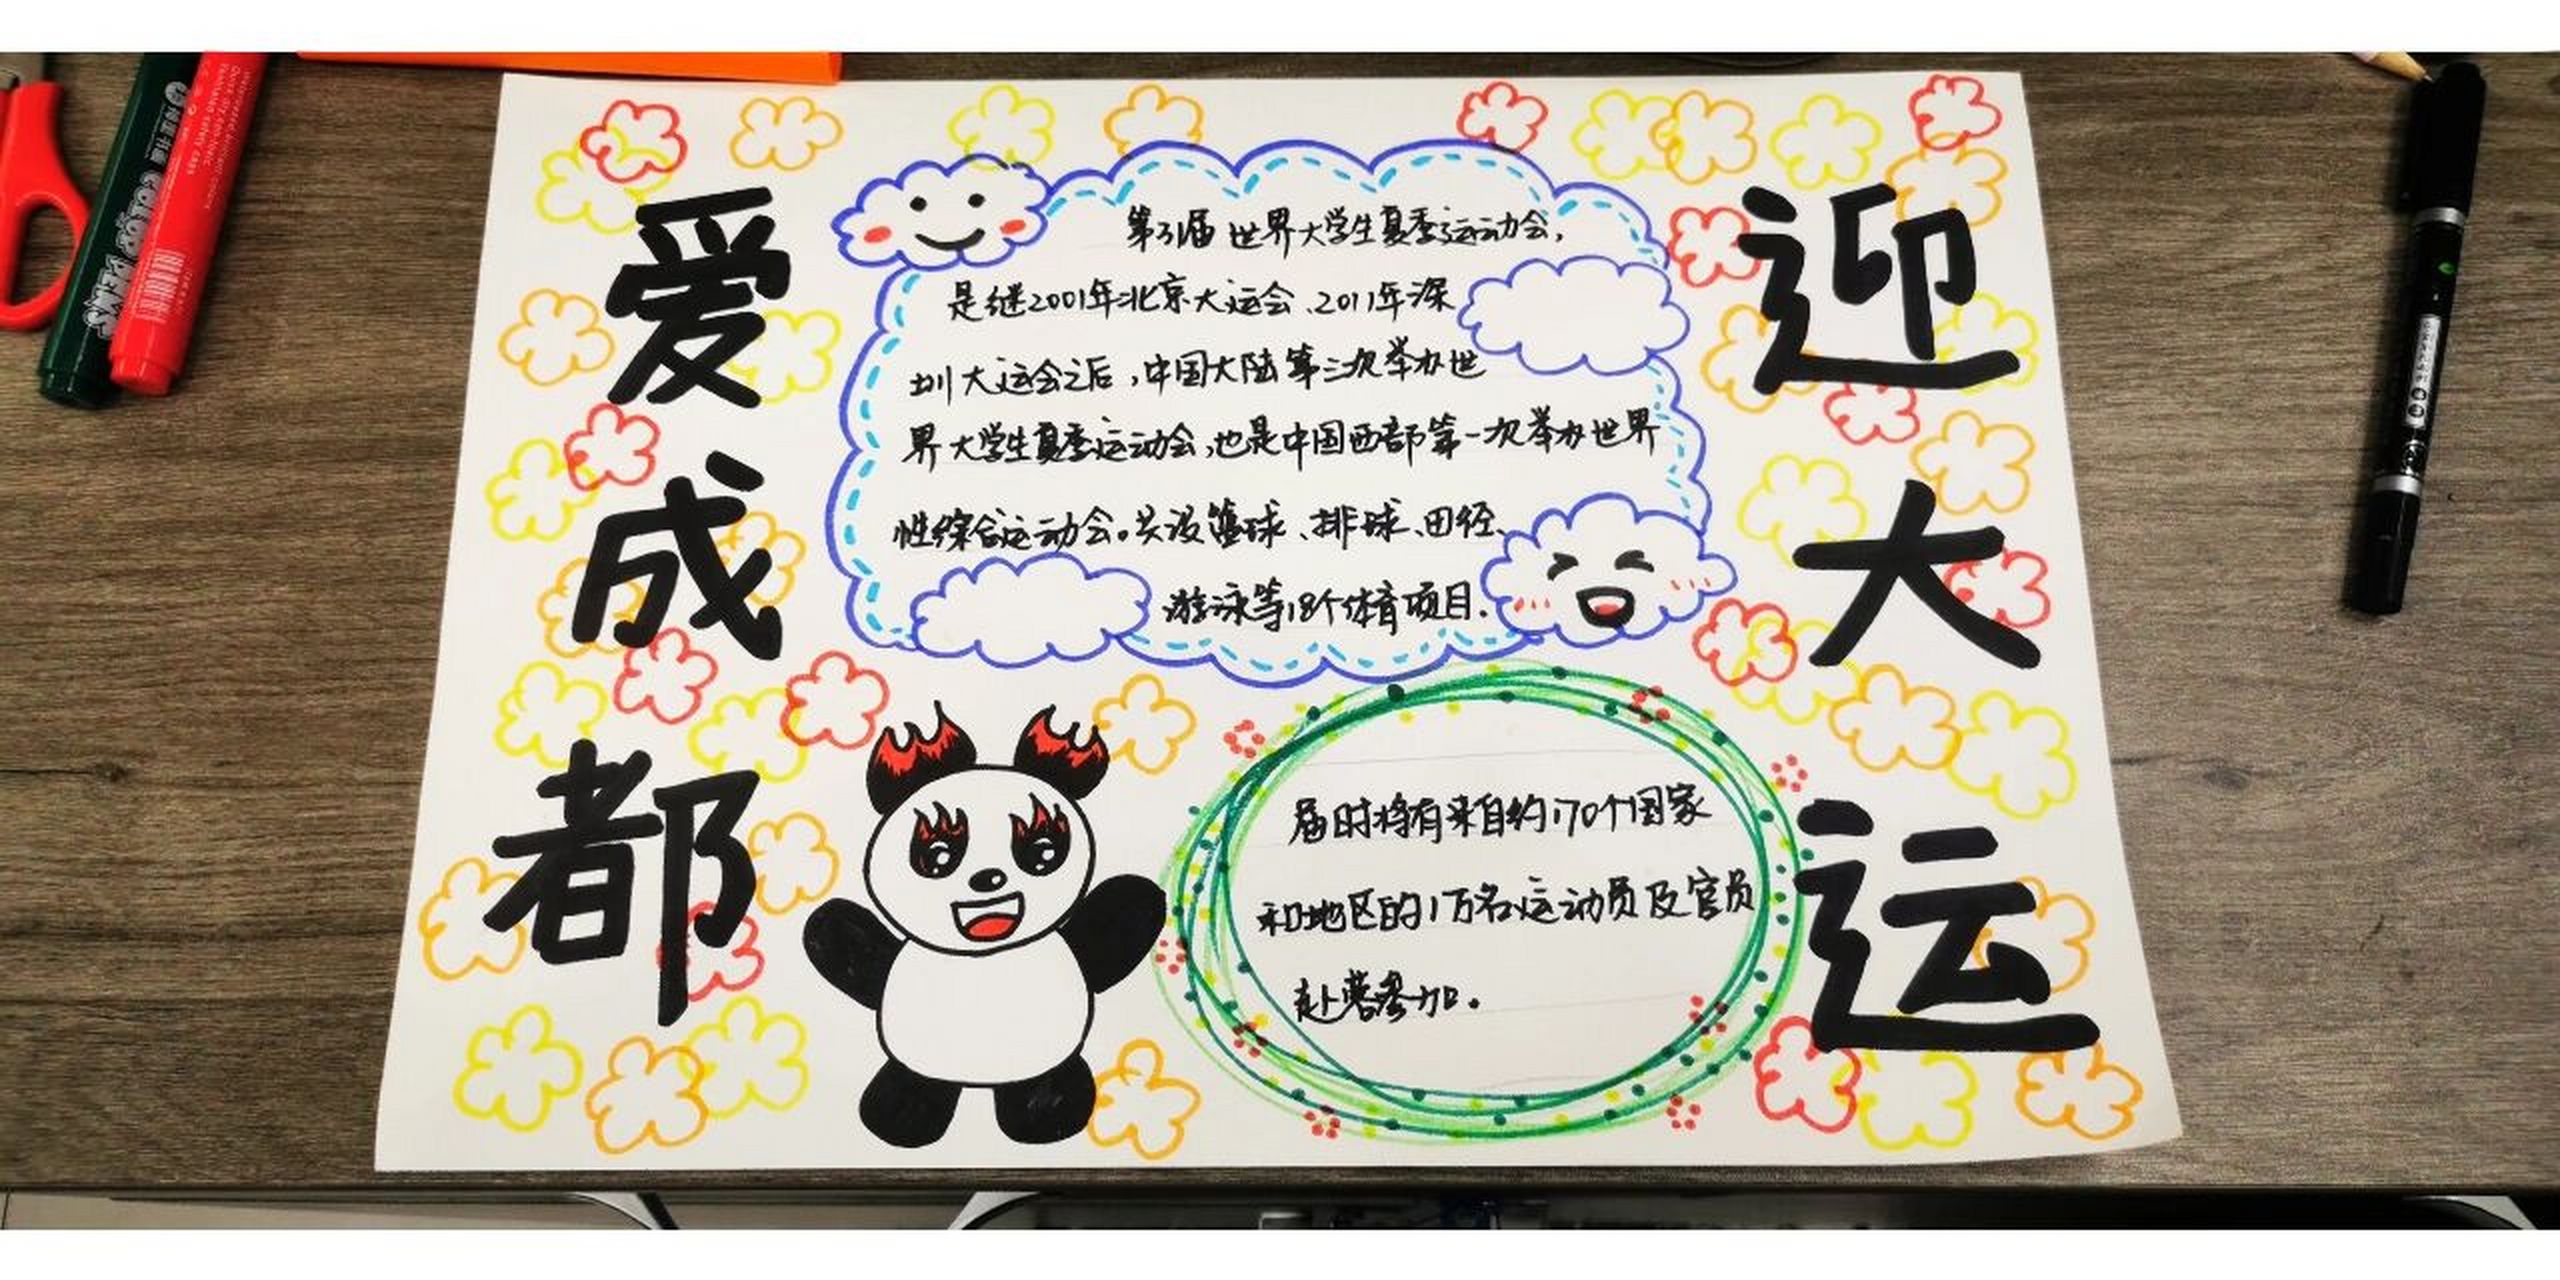 爱成都
迎大运
第31届世界大学生夏季运动会,
是继2001年北京大运会、2011年深
圳大运会之后,中国大陆第三次举办世
界大学生夏季运动会,也是中国西部第一次举办世界
性综合运动会。共设篮球、排球、田径、
游泳等18个体育项目.
届时将有来自约170个国家
和地区的1万名运动员及官员
赴蓉参加。
COLOR PENS